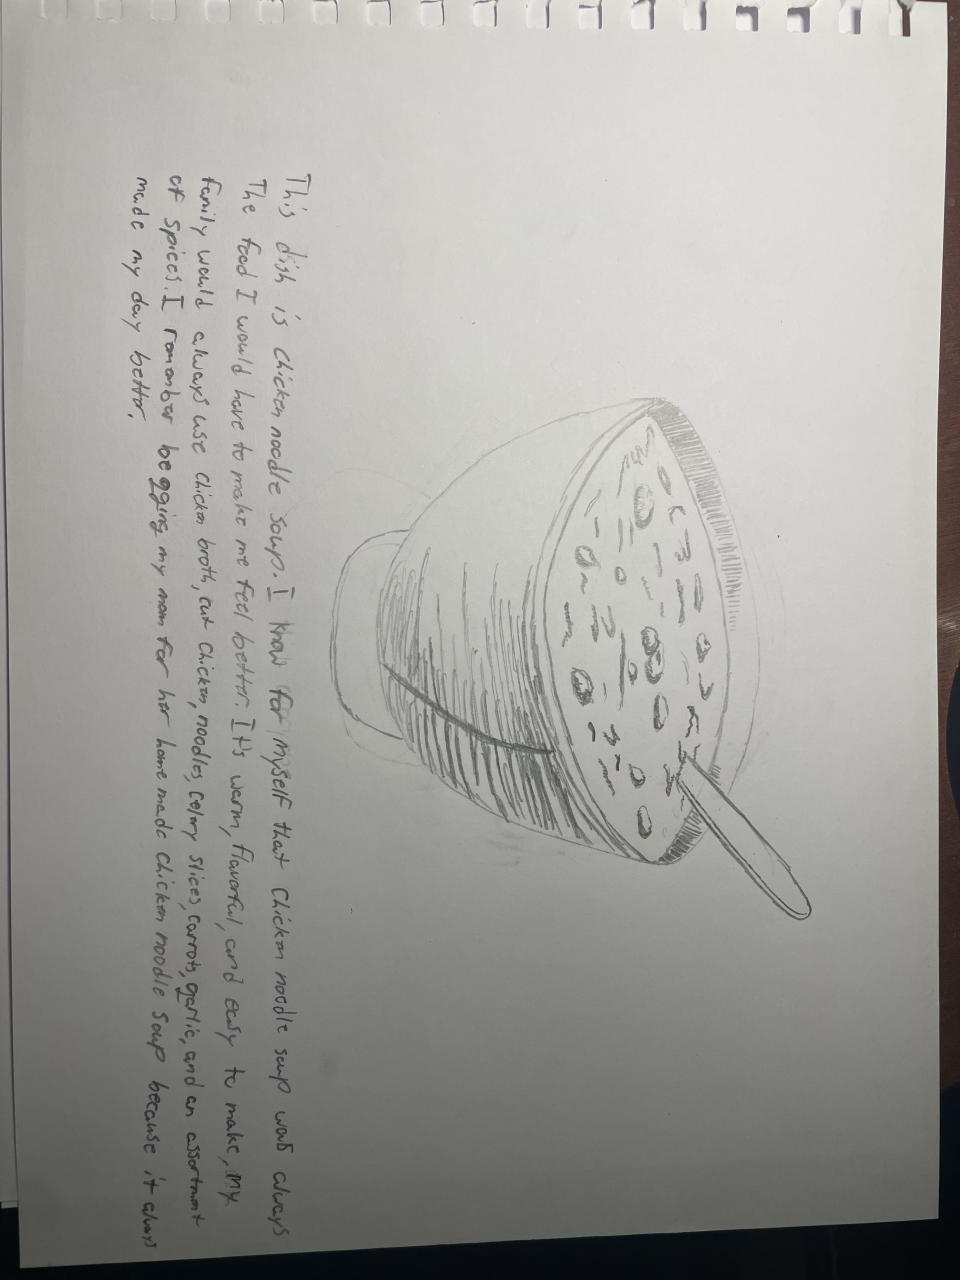 This dish is chicken noodle soup. I know for myself that chicken noodle soup was always
The food I would have to make me feel better. It's warm, flavorful, and easy to make, my
family would always use chicken broth, cut chicken, noodles, celery slices, carrots, garlic, and an assortment
of spices. I remember begging my mom for her home made chicken noodle soup because it always
made my day better.